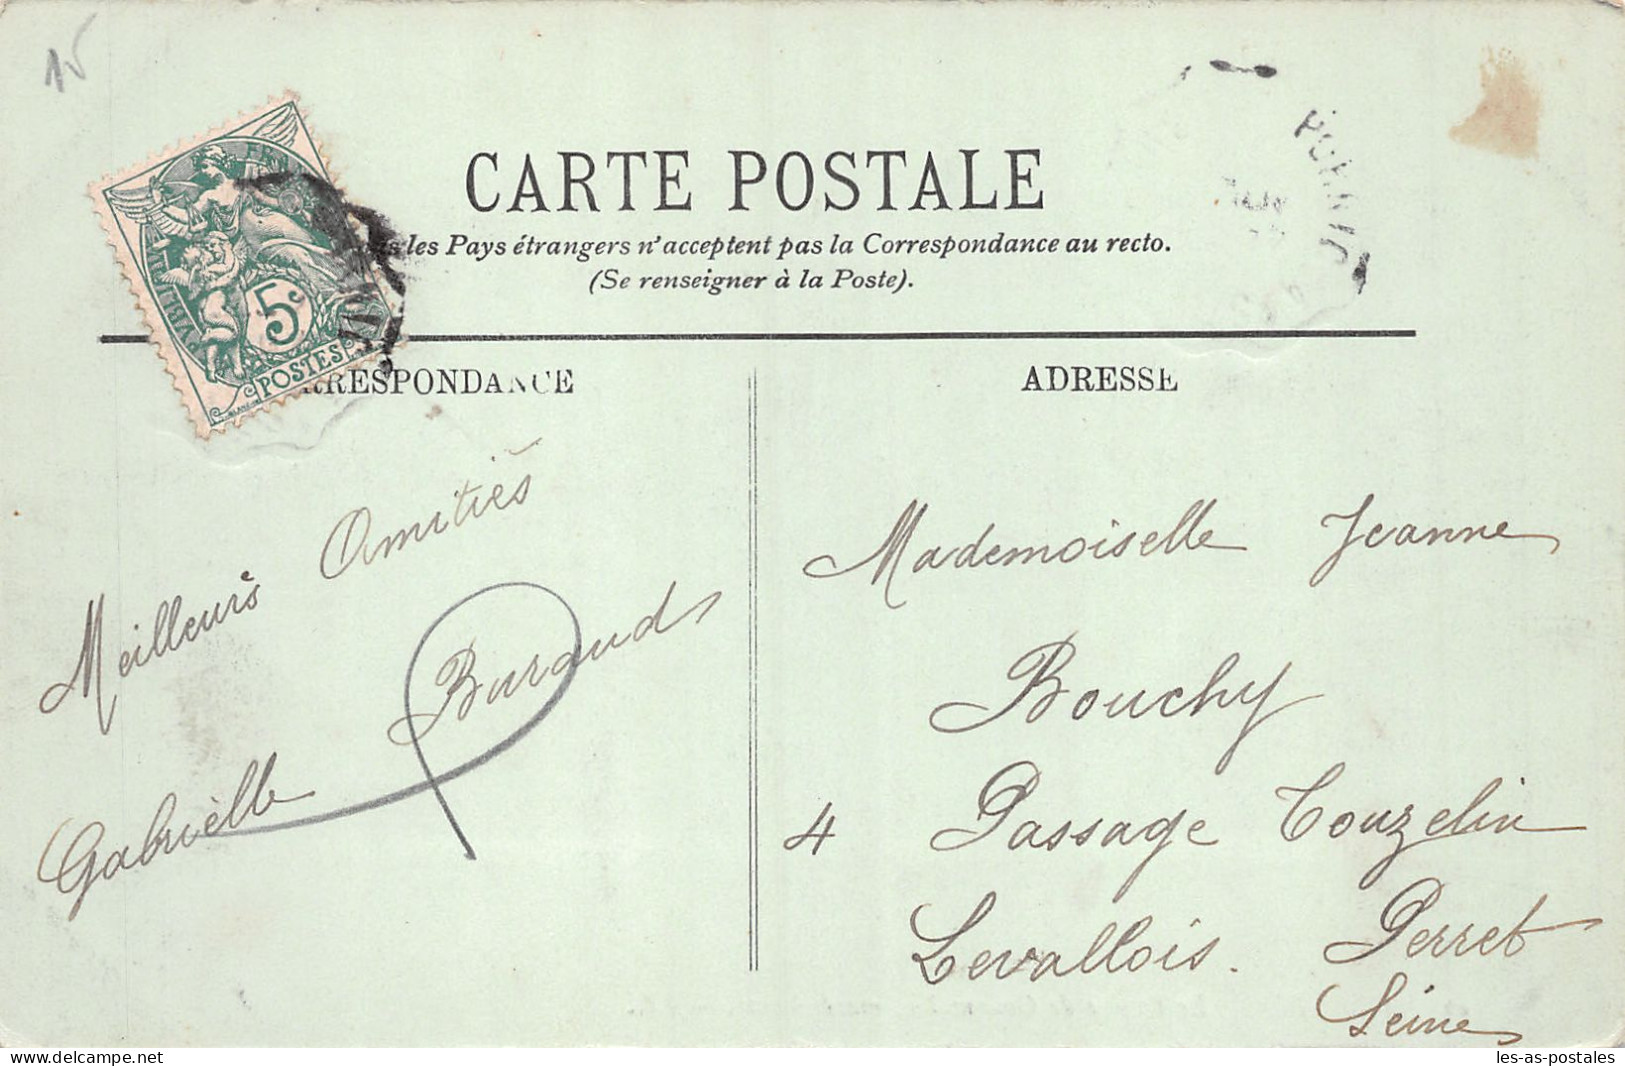 15
CARTE POSTALE
les Pays étrangers n'acceptent pas la Correspondance au recto.
(Se renseigner à la Poste).
5c
POSTES
RRESPONDANCE
ADRESSE
PORNIC
Meilleurs Amitiés
Gabrièlle Buraud
Mademoiselle Jeanne
Bouchy
4 Passage Touzelin
Levallois. Perret
Seine
les-as-postales